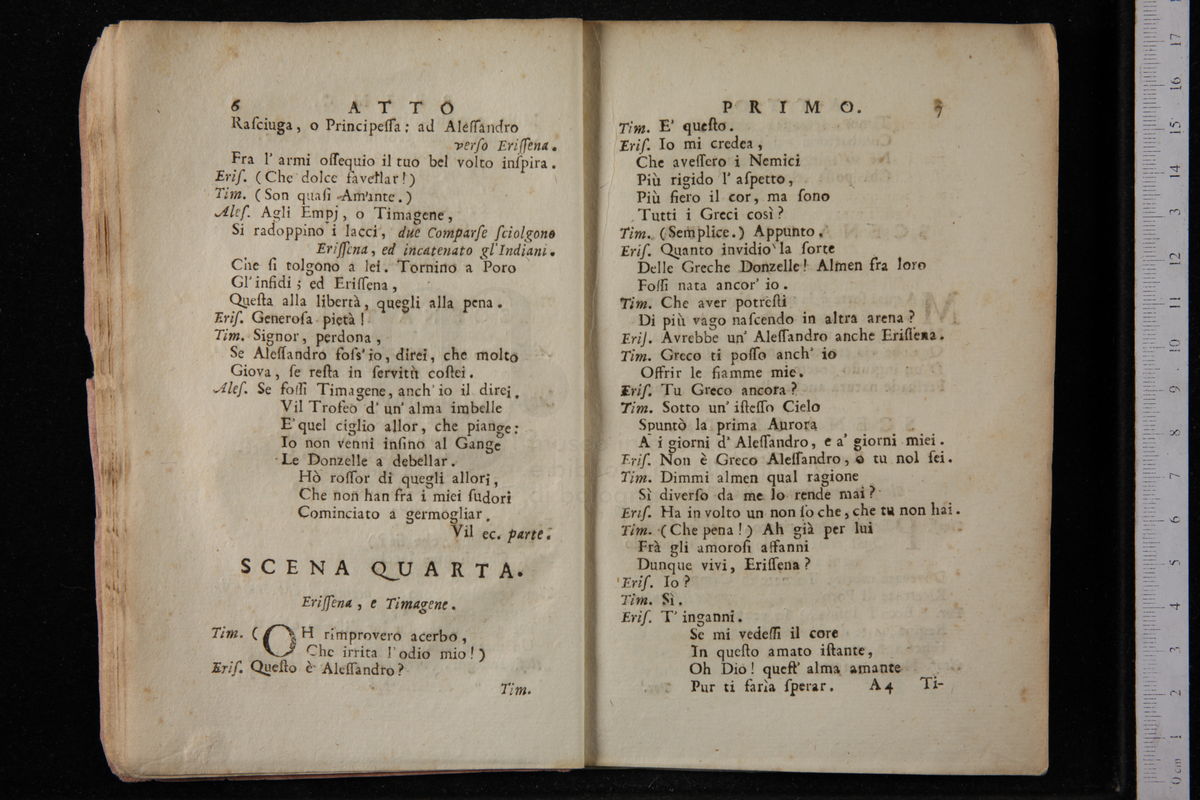 6 ATTO
Raſciuga, o Principeſſa: ad Aleſſandro
verſo Eriſſena.
Fra l' armi oſſequio il tuo bel volto inſpira.
Eriſ. (Che dolce favellar!)
Tim. (Son quaſi Amante.)
Aleſ. Agli Empj, o Timagene,
Si radoppino i lacci, due Comparſe ſciolgono
Eriſſena, ed incatenato gl'Indiani.
Che ſi tolgono a lei. Tornino a Poro
Gl'infidi; ed Eriſſena,
Queſta alla libertà, quegli alla pena.
Eriſ. Generoſa pietà!
Tim. Signor, perdona,
Se Aleſſandro foſs'io, direi, che molto
Giova, ſe reſta in ſervitù coſtei.
Aleſ. Se foſſi Timagene, anch'io il direi.
Vil Trofeo d' un' alma imbelle
E' quel ciglio allor, che piange:
Io non venni inſino al Gange
Le Donzelle a debellar.
Hò roſſor di quegli allori,
Che non han fra i miei ſudori
Cominciato a germogliar.
Vil ec. parte.
SCENA QUARTA.
Eriſſena, e Timagene.
Tim. (OH rimprovero acerbo,
Che irrita l'odio mio!)
Eriſ. Queſto è Aleſſandro?
Tim.
PRIMO. 7
Tim. E' queſto.
Eriſ. Io mi credea,
Che aveſſero i Nemici
Più rigido l' aſpetto,
Più fiero il cor, ma ſono
Tutti i Greci così?
Tim. (Semplice.) Appunto.
Eriſ. Quanto invidio la ſorte
Delle Greche Donzelle! Almen fra loro
Foſſi nata ancor' io.
Tim. Che aver potreſti
Di più vago naſcendo in altra arena?
Eriſ. Avrebbe un' Aleſſandro anche Eriſſena.
Tim. Greco ti poſſo anch' io
Offrir le fiamme mie.
Eriſ. Tu Greco ancora?
Tim. Sotto un' iſteſſo Cielo
Spuntò la prima Aurora
A i giorni d' Aleſſandro, e a' giorni miei.
Eriſ. Non è Greco Aleſſandro, o tu nol ſei.
Tim. Dimmi almen qual ragione
Sì diverſo da me lo rende mai?
Eriſ. Ha in volto un non ſo che, che tu non hai.
Tim. (Che pena!) Ah già per lui
Frà gli amoroſi affanni
Dunque vivi, Eriſſena?
Eriſ. Io?
Tim. Sì.
Eriſ. T' inganni.
Se mi vedeſſi il core
In queſto amato iſtante,
Oh Dio! queſt' alma amante
Pur ti farìa ſperar. A4 Ti-